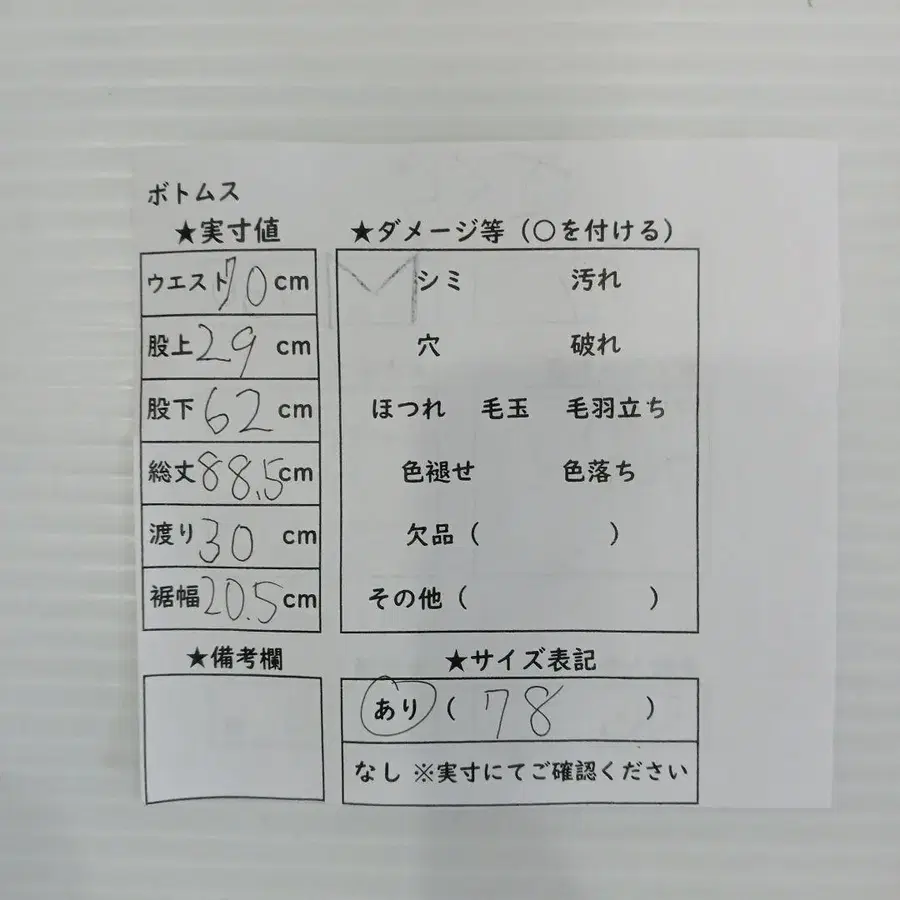 ボトムス
★実寸値
ウエスト 70 cm
股上 29 cm
股下 62 cm
総丈 88.5 cm
渡り 30 cm
裾幅 20.5 cm
★ダメージ等（〇を付ける）
M シミ 汚れ
穴 破れ
ほつれ 毛玉 毛羽立ち
色褪せ 色落ち
欠品（ ）
その他（ ）
★備考欄
★サイズ表記
あり（ 78 ）
なし ※実寸にてご確認ください